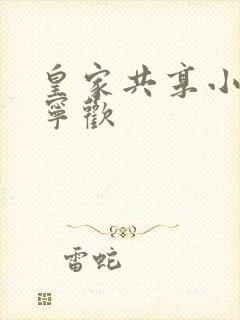 皇家共享小
寧歡
雷蛇